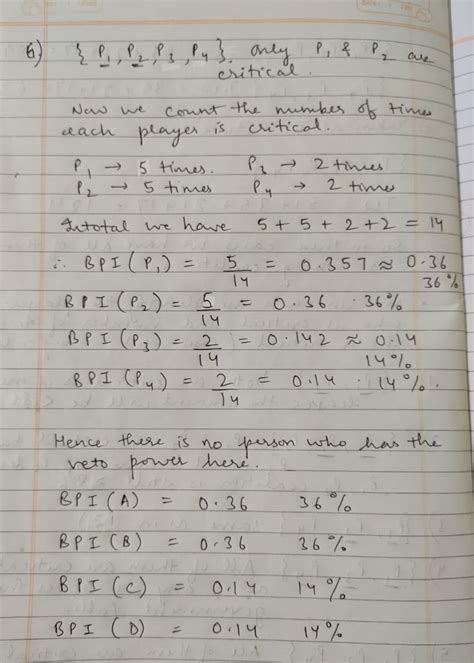 6) { P1, P2, P3, P4 }. only P1 & P2 are
critical.
Now we count the number of times
each player is critical.
P1 → 5 times. P3 → 2 times
P2 → 5 times P4 → 2 times
Intotal we have 5 + 5 + 2 + 2 = 14
∴ BPI (P1) = 5/14 = 0.357 ≈ 0.36
36%
BPI (P2) = 5/14 = 0.36 · 36%
BPI (P3) = 2/14 = 0.142 ≈ 0.14
14%
BPI (P4) = 2/14 = 0.14 · 14%.
Hence there is no person who has the
veto power here.
BPI (A) = 0.36 36%
BPI (B) = 0.36 36%
BPI (C) = 0.14 14%
BPI (D) = 0.14 14%